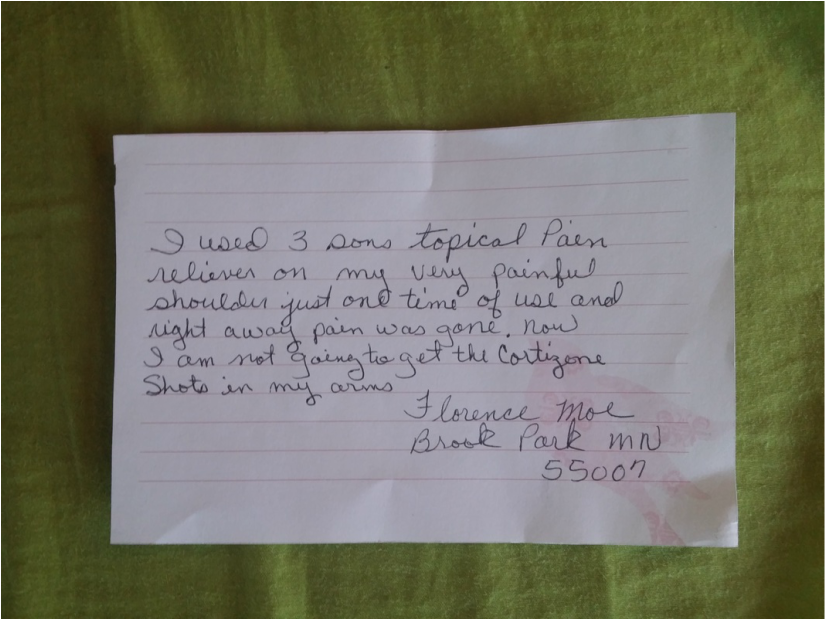 I used 3 sons topical Pain
reliever on my very painful
shoulder just one time of use and
right away pain was gone. now
I am not going to get the Cortizone
Shots in my arms
Florence Moe
Brook Park MN
55007